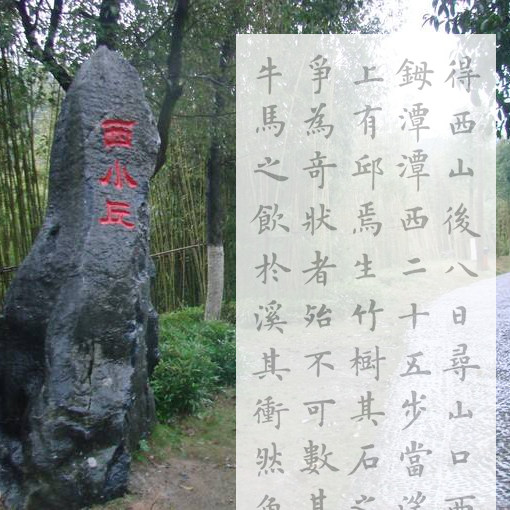 西小丘
得西山後八日尋山口西
鉧潭潭西二十五步當
上有邱焉生竹樹其石之
爭為奇狀者殆不可數其
牛馬之飲於溪其衝然角